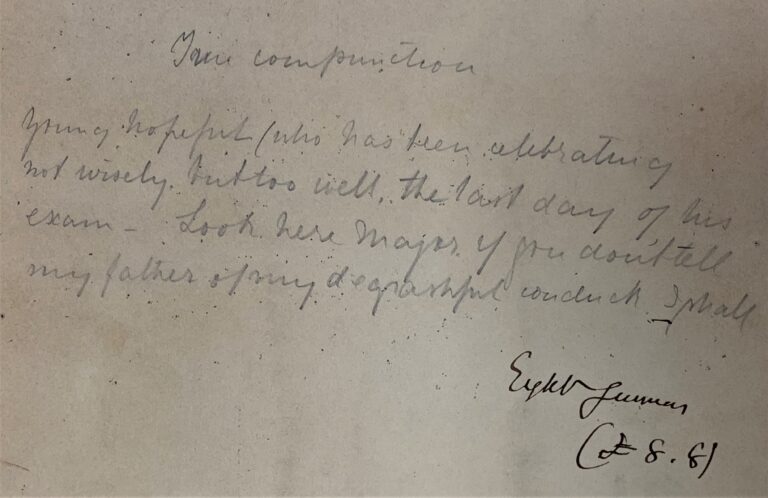 True compunction
Young hopeful (who has been celebrating
not wisely but too well, the last day of his
exam - Look here Major if you don't tell
my father of my degrashful conduck I shall
Eight Guineas
(£8.8)